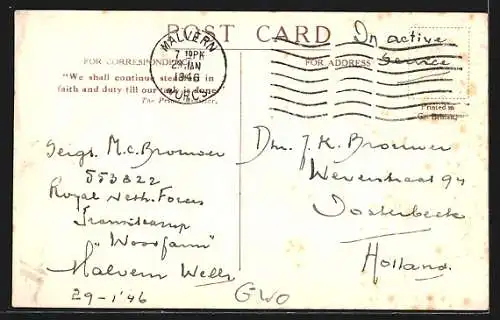 POST CARD
In active
Service
MALVERN
7 PM
29 JAN
1946
WORCS.
FOR CORRESPONDENCE
FOR ADDRESS
"We shall continue steadfast in
faith and duty till our task is done"
The Prime Minister.
Printed in
Gt. Britain
Sergt. M.C. Brouwer
553822
Royal Neth. Forces
Transitcamp
"Woodfarm"
Malvern Wells
29-1-'46
Dhr. J.K. Brouwer
Weverstraat 94
Oosterbeek
Holland.
GWO